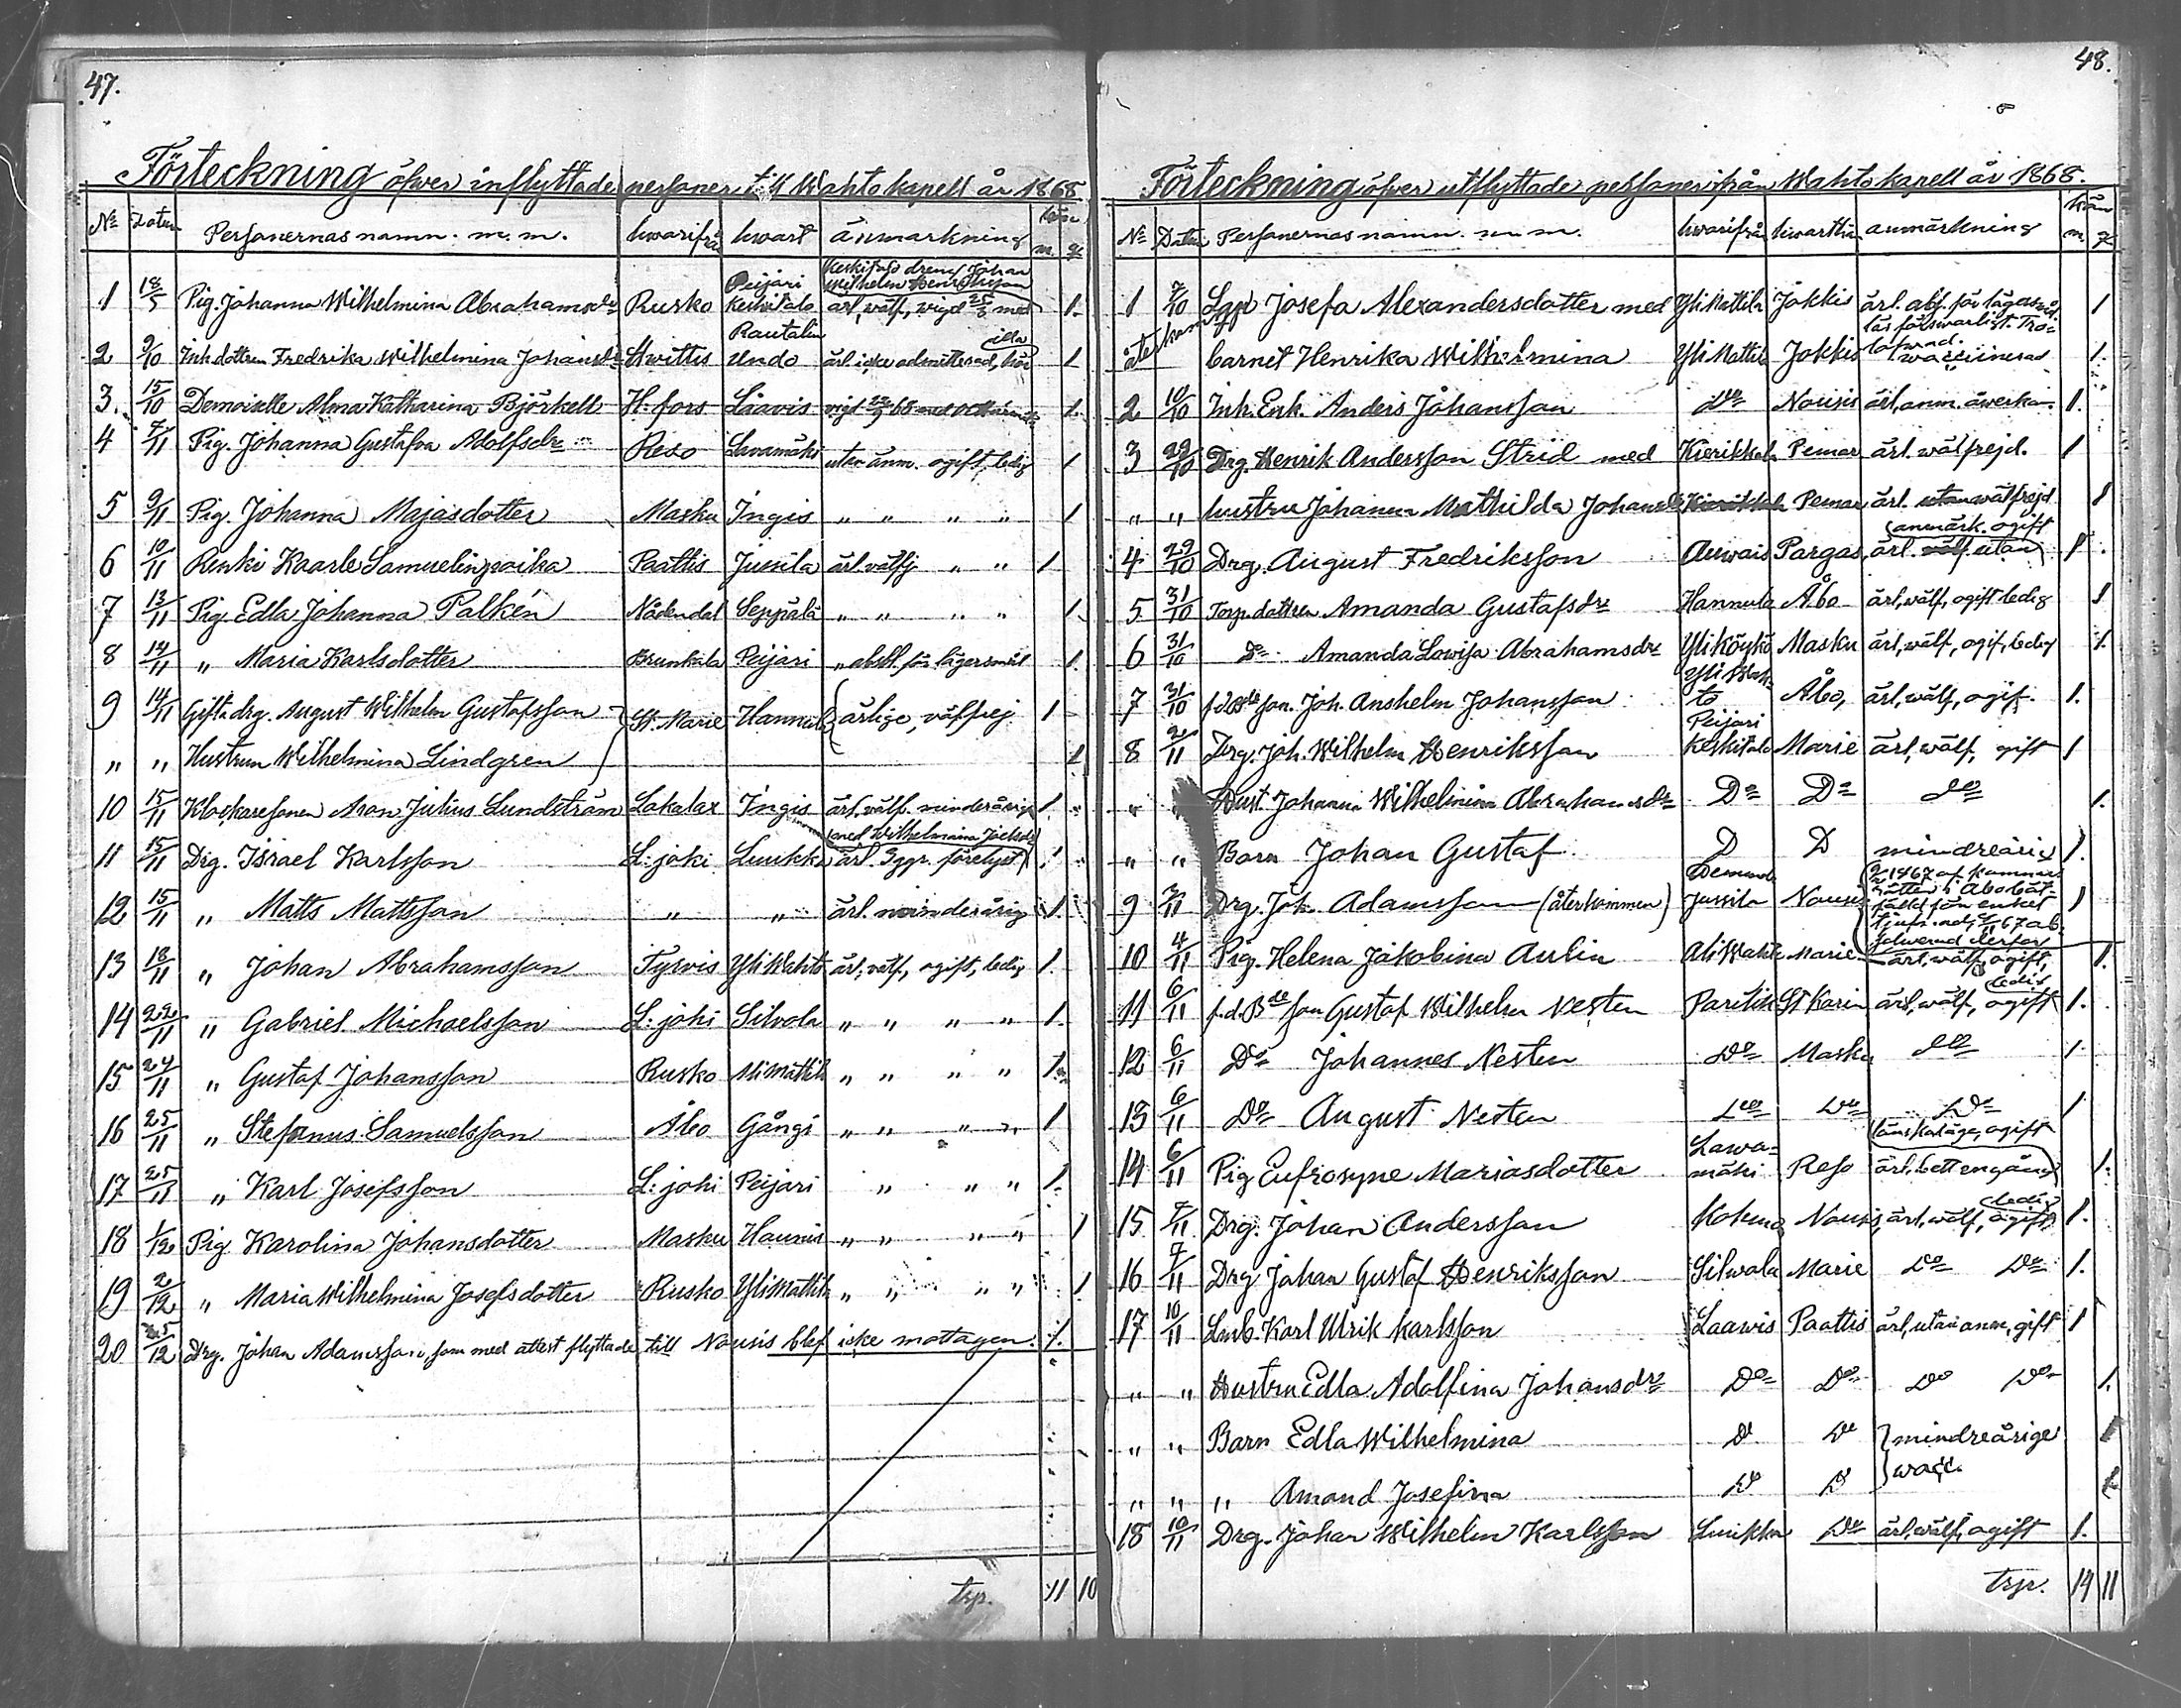 47.
Förteckning öfver inflyttade personer till Wahto kapell år 1868
No Datum Personernas namn. m. m. hwarifrå hwart anmärkning kön m. q.
1 18/5 Pig. Johanna Wilhelmina Abrahamsdr Rusko Peijari Keskitalo Keskitalo dreng Johan Wilhelm Henriksson ärl, wälf, wigd 25/5 med 1.
2 9/10 Inh. dottren Fredrika Wilhelmina Johansdr Hwittis Rautalin Undo ärl. icke admitterad, läs illa 1
3. 15/10 Demoiselle Alma Katharina Björkell H:fors Laavis vigd 68 med 1.
4 7/11 Pig. Johanna Gustafva Adolfsdr Reso Lavamäki utan anm. ogift, ledig 1
5 9/11 Pig. Johanna Majasdotter Masku Ingis " " " " 1
6 10/11 Renki Kaarle Samuelinpoika Paattis Jussila ärl. välfr " " 1
7 13/11 Pig. Edla Johanna Palkén Nådendal Seppälä " " " " 1.
8 14/11 " Maria Karlsdotter Brunkala Peijari " absol. för lägersmål 1.
9 14/11 Gifta drg. August Wilhelm Gustafsson St. Marie Hannula ärlige, välfrej 1
" " Hustrun Wilhelmina Lindgren 1
10 15/11 Klockaresonen Aron Julius Lundström Lokalax Ingis ärl. välf. minderårig 1.
11 15/11 Drg. Israel Karlsson L:joki Luukka med Wilhelmina Joelsdr ärl. 3ggr. förelyst 1
12 15/11 " Matts Mattsson " " ärl. minderårig 1.
13 18/11 " Johan Abrahamsson Tyrvis YliWahto ärl, välf, ogift, ledig 1.
14 22/11 " Gabriel Michaelsson L:joki Silvola " " " " 1.
15 24/11 " Gustaf Johansson Rusko YliMattil " " " " 1.
16 25/11 " Stefanus Samuelsson Åbo Gångi " " " " 1
17 25/11 " Karl Josefsson L:joki Peijari " " " 1.
18 1/12 Pig. Karolina Johansdotter Masku Haunis " " " " 1
19 2/12 " Maria Wilhelmina Josefsdotter Rusko YliMattil " " " " 1.
20 25/12 Drg. Johan Adamsson, som med attest flyttade till Nousis blef icke mottagen. 1.
trp. 11 10
48.
Förteckning öfver utflyttade personer ifrån Wahto kapell år 1868.
No Datum Personernas namn. m. m. hwarifrån hwarthän anmärkning kön m. q.
1 7/10 Josefa Alexandersdotter med YliMattila Jokkis ärl. abs. för lägersmål. läs försvarligt. 1
återkommit barnet Henrika Wilhelmina YliMattila Jokkis waccinerad 1.
2 10/10 Inh. Enk. Anders Johansson Do Nousis ärl, anm. 1.
3 29/10 Drg. Henrik Andersson Strid med Kierikkala Pemar ärl. wälfrejd. 1
" " hustru Johanna Mathilda Johansdr Kierikkala Pemar ärl. utan wälfrejd 1
4 29/10 Drg. August Fredriksson Auvais Pargas ärl. wälf. utan anmärk. ogift 1.
5 31/10 Torp. dottren Amanda Gustafsdr Hannula Åbo ärl, wälf, ogift ledig 1
6 31/10 Do Amanda Lowisa Abrahamsdr YliKöykö Masku ärl, wälf, ogif, ledig 1.
7 31/10 son. Joh. Anshelm Johansson YliWahto Åbo, ärl, wälf, ogif. 1.
8 2/11 Drg. Joh. Wilhelm Henriksson Peijari Keskitalo Marie ärl, wälf, gift 1
" " Hust. Johanna Wilhelmina Abrahamsdr Do Do Do 1.
" " Barn Johan Gustaf. D D mindreårig 1.
9 3/11 Drg. Joh. Adamsson (återkommen) Jussila Nousis 1867 af kammar rätten i Åbo fälld för enkel tjufn. 1
10 4/11 Pig. Helena Jakobina Aulin AliWahto Marie ärl, wälf, ogift, 1.
11 6/11 f.d. Bde son Gustaf Wilhelm Nesten St Karin ärl, wälf, ogift ledig 1.
12 6/11 Do Johannes Nesten Do Masku Do 1
13 6/11 Do August Nesten Do Do Do 1
14 6/11 Pig Eufrosyne Mariasdotter Lawamäki Reso ärl. bett engång ogift 1.
15 7/11 Drg. Johan Andersson Nousis, ärl, wälf, ogift ledig 1.
16 7/11 Drg Johan Gustaf Henriksson Silwola Marie Do Do 1.
17 10/11 Lmb. Karl Ulrik Karlsson Laawis Paattis ärl, utan anm, gift 1
" " Hustru Edla Adolfina Johansdr Do Do Do Do 1.
" " Barn Edla Wilhelmina D Do mindreårige wacc. 1
" " " Amand Josefina D D 1
18 10/11 Drg. Johan Wilhelm Karlsson Luukka Do ärl, wälf, ogift 1.
trp. 14 11